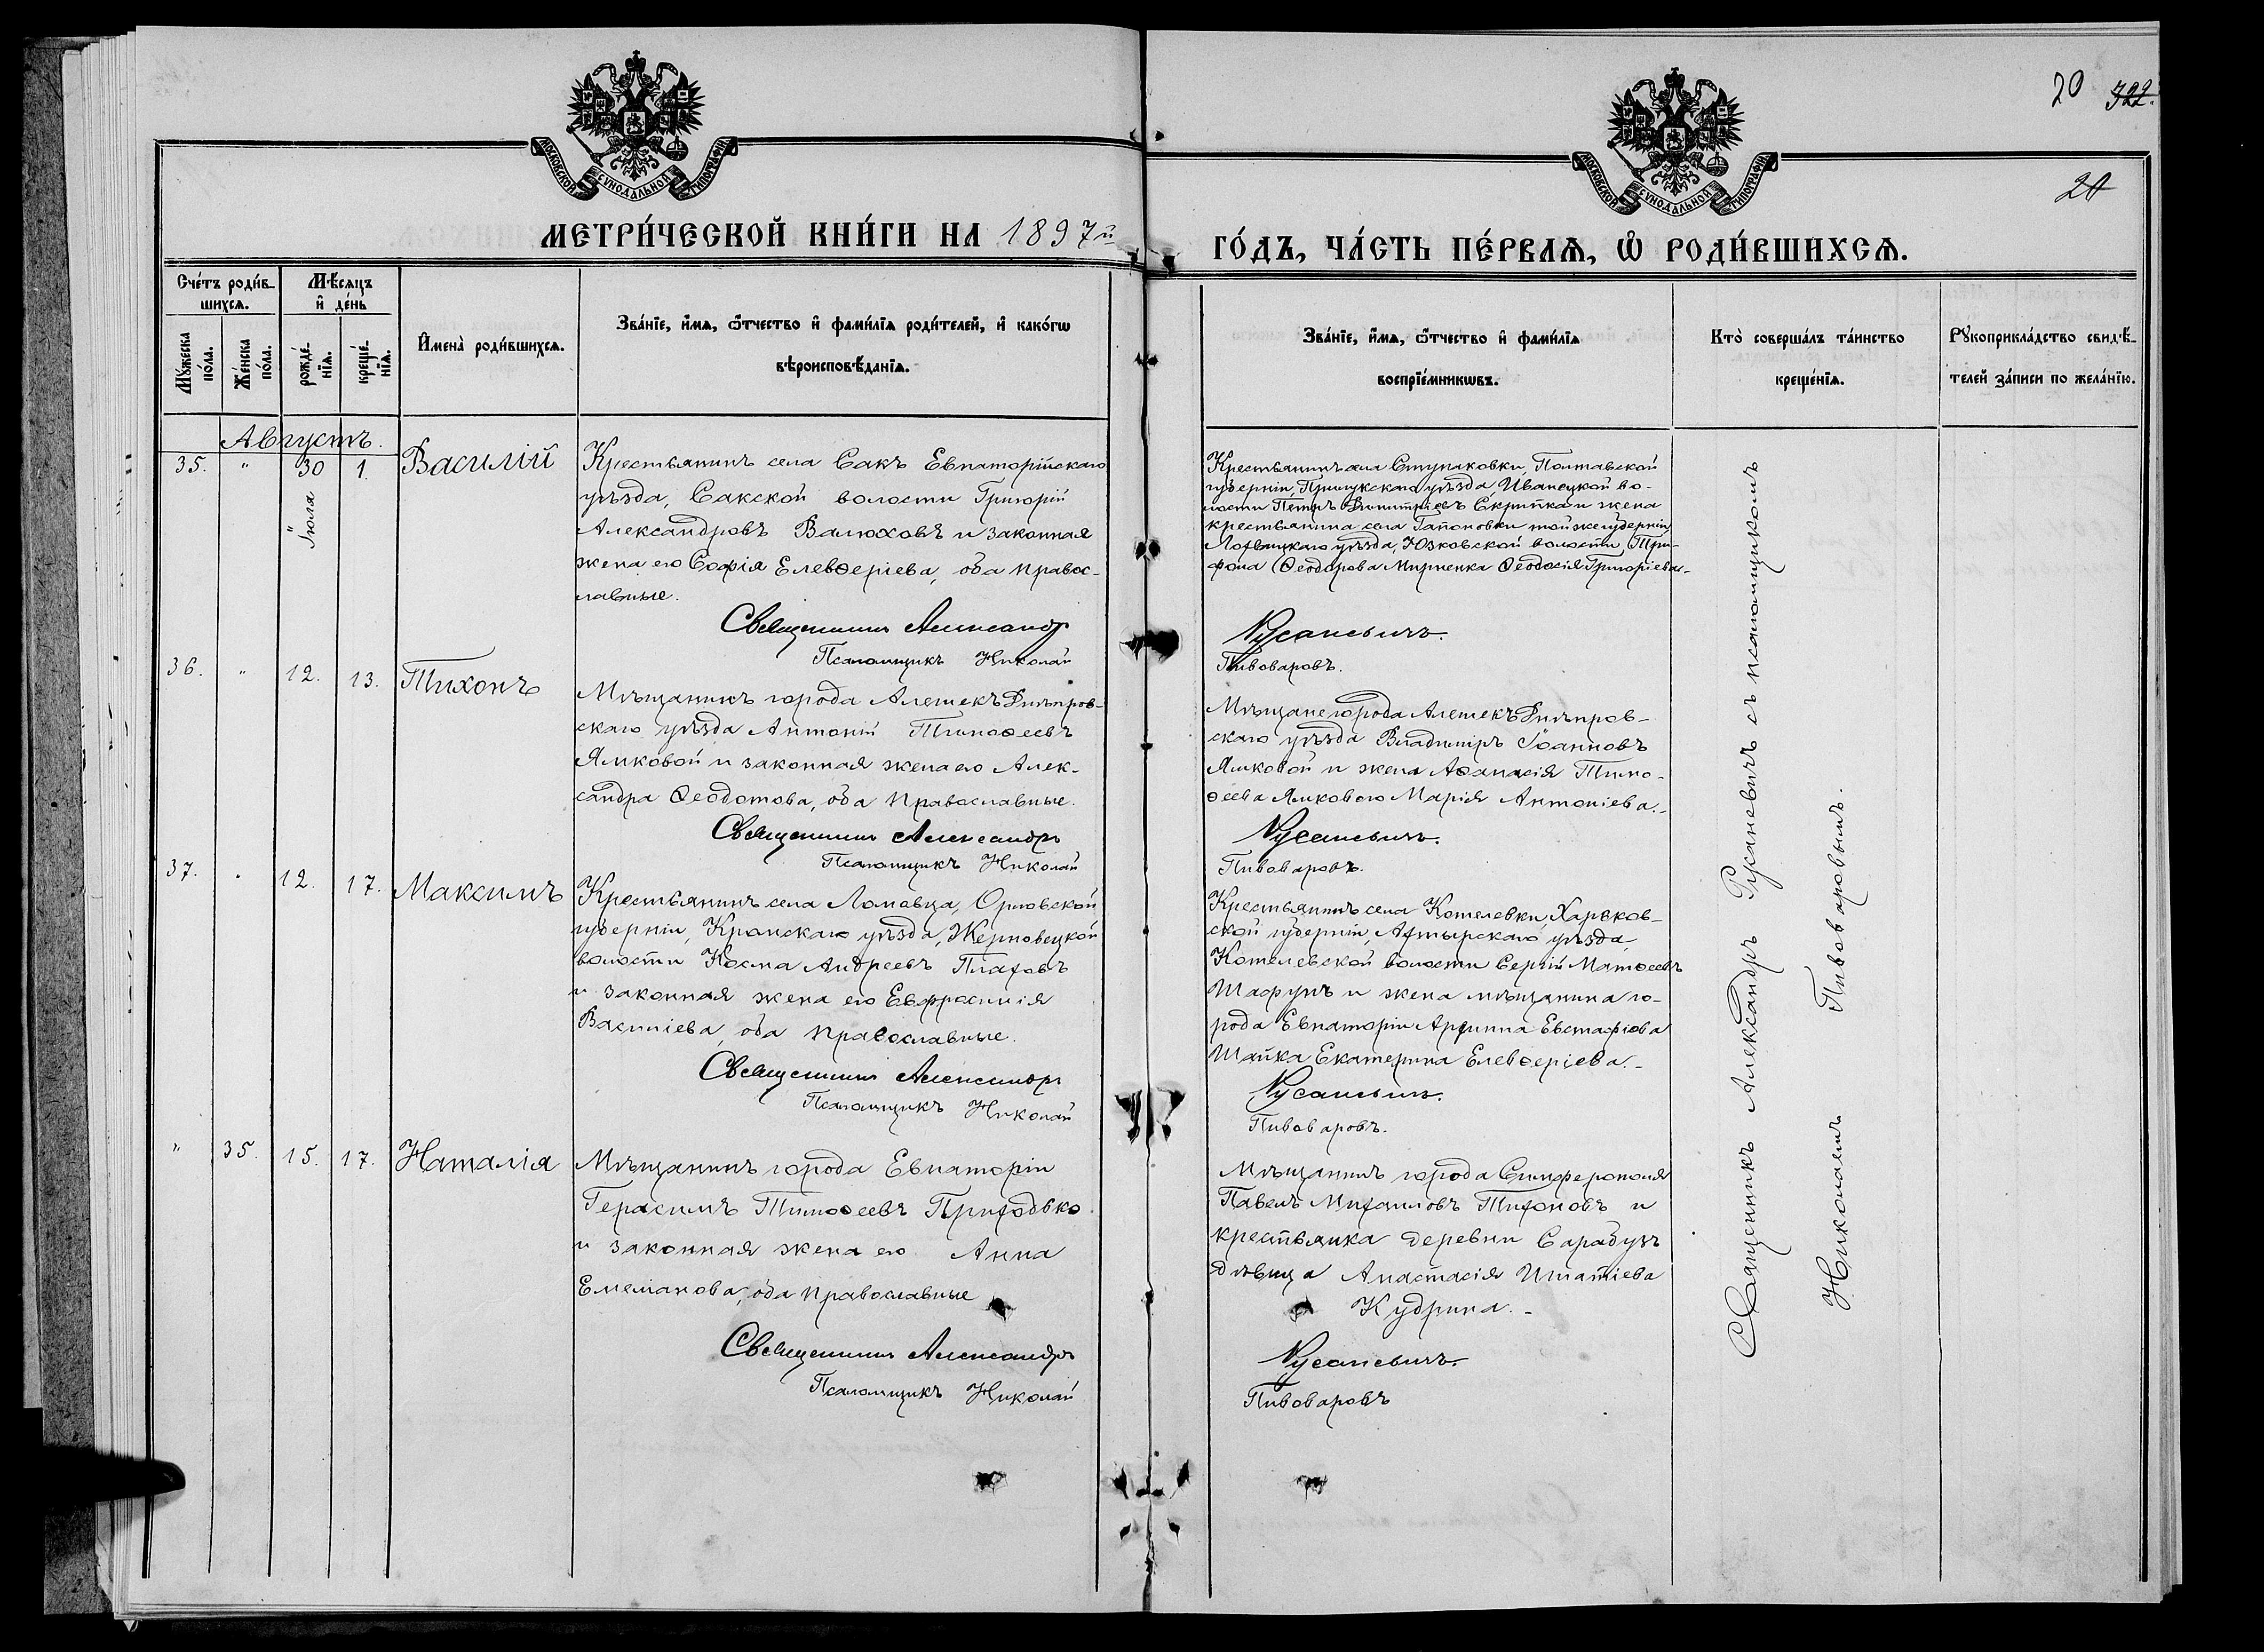 20 322.
20
МОСКОВСКОЙ СУНОДАЛЬНОЙ ТИПОГРАФІИ
МОСКОВСКОЙ СУНОДАЛЬНОЙ ТИПОГРАФІИ
МЕТРИ́ЧЕСКОЙ КНИ́ГИ НА 1897й
ГО́ДЪ, ЧА́СТЬ ПЕ́РВАѦ, Ѡ҆ РОДИ́ВШИХСѦ.
Сче́тъ роди́в-
шихсѧ.
Мѣ́сѧцъ
и҆ де́нь
Мꙋ́жеска
по́ла.
Же́нска
по́ла.
рожде́-
нїѧ.
креще́-
нїѧ.
И҆мена̀ роди́вшихсѧ.
Зва́нїе, и҆́мѧ, ѻ҆́тчество и҆ фами́лїѧ роди́телей, и҆ како́гѡ
вѣроисповѣ́данїѧ.
Зва́нїе, и҆́мѧ, ѻ҆́тчество и҆ фами́лїѧ
воспрїе́мникѡвъ.
Кто̀ соверша́лъ та́инство
креще́нїѧ.
Рꙋкоприкла́дство свидѣ́-
телей за́писи по жела́нїю.
Августъ.
35. " 30 1. Василій
Іюля
Крестьянинъ села Сакъ Евпаторійскаго
уѣзда, Сакской волости Григорій
Александровъ Валюховъ и законная
жена его Софія Елевѳеріева, оба правос-
лавные.
Священникъ Александр
Псаломщикъ Николай
Крестьянинъ села Ступаковки, Полтавской
губерніи, Прилукскаго уѣзда, Иваницкой во-
лости Петръ Димитріевъ Скрипка и жена
крестьянина села Гапоновки той же губерніи,
Лохвицкаго уѣзда, Юзковской волости, Три-
фона Ѳеодорова Мирненка Ѳеодосія Григоріева.-
Русаневичъ.
Пивоваровъ.
36. " 12. 13. Тихонъ
Мѣщанинъ города Алешекъ Днѣпров-
скаго уѣзда Антоній Тимоѳеевъ
Ямковой и законная жена его Алек-
сандра Ѳеодотова, оба православные.
Священникъ Александръ
Псаломщикъ Николай
Мѣщане города Алешекъ Днѣпров-
скаго уѣзда Владиміръ Іоанновъ
Ямковой и жена Аѳанасія Тимо-
ѳеева Ямкового Марія Антоніева.-
Русаневичъ.
Пивоваровъ.
37. " 12. 17. Максимъ
Крестьянинъ села Ломавца, Орловской
губерніи, Кромскаго уѣзда, Жерновецкой
волости Косма Андреевъ Плаховъ
и законная жена его Евфросинія
Василіева, оба православные.
Священникъ Александръ
Псаломщикъ Николай
Крестьянинъ села Котелевки, Харьков-
ской губерніи, Ахтырскаго уѣзда,
Котелевской волости Сергій Матѳеевъ
Шафунъ и жена мѣщанина го-
рода Евпаторіи Архиппа Евстафіова
Шапка Екатерина Елевѳеріева.-
Русаневичъ.
Пивоваровъ.
" 35. 15. 17. Наталія
Мѣщанинъ города Евпаторіи
Герасимъ Тимоѳеевъ Приходько
и законная жена его Анна
Емеліанова, оба православные
Священникъ Александръ
Псаломщикъ Николай
Мѣщанинъ города Симферополя
Павелъ Михаиловъ Тихоновъ и
крестьянка деревни Сарабузъ
дѣвица Анастасія Игнатіева
Кудрина.-
Русаневичъ.
Пивоваровъ
Священникъ Александръ Русаневичъ съ псаломщикомъ
Николаемъ Пивоваровымъ.